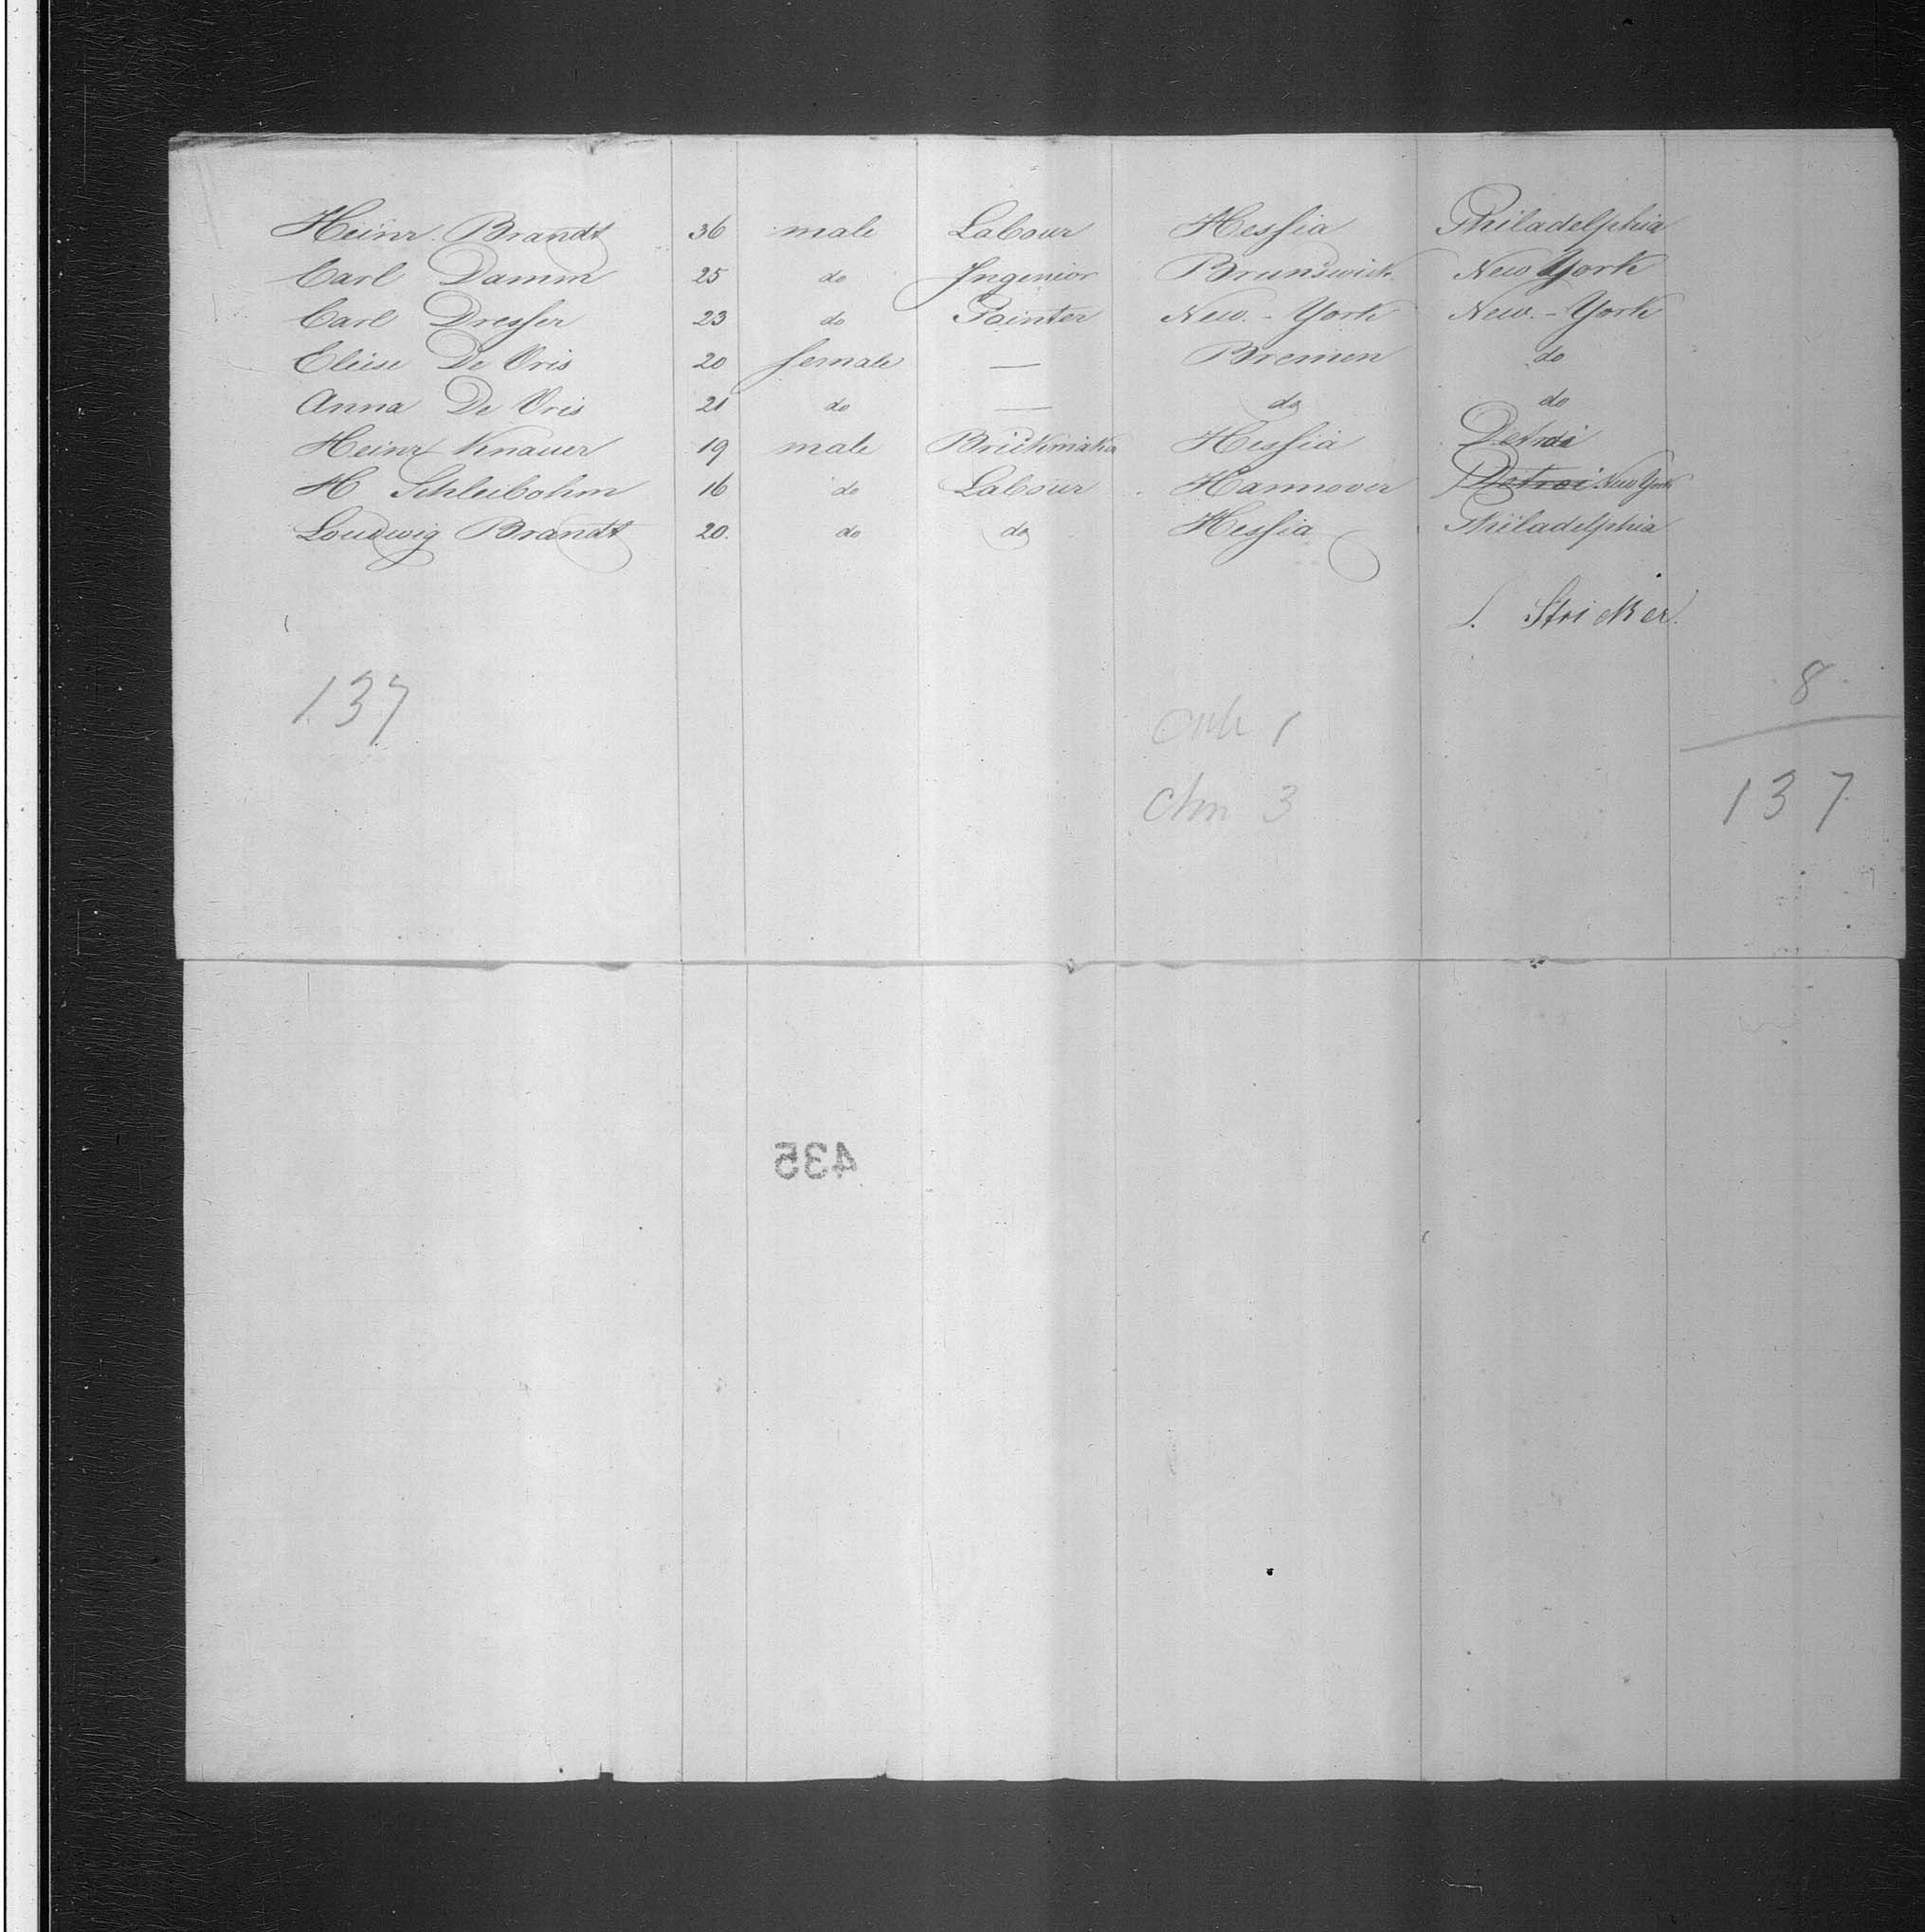 Heinr. Brandt 36 male Labour Hessia Philadelphia
Carl Damm 25 do Ingenior Brunswick New York
Carl Dresser 23 do Painter New.-York New.-York
Eliese De Vris 20 female — Bremen do
Anna De Vris 21 do — do do
Heinr Knauer 19 male Brickmaker Hessia Detroi
H Schleibohm 16 do Labour Hannover Detroi New York
Loudwig Brandt 20. do do Hessia Philadelphia
Stricker.
8
137
1
3
137
435